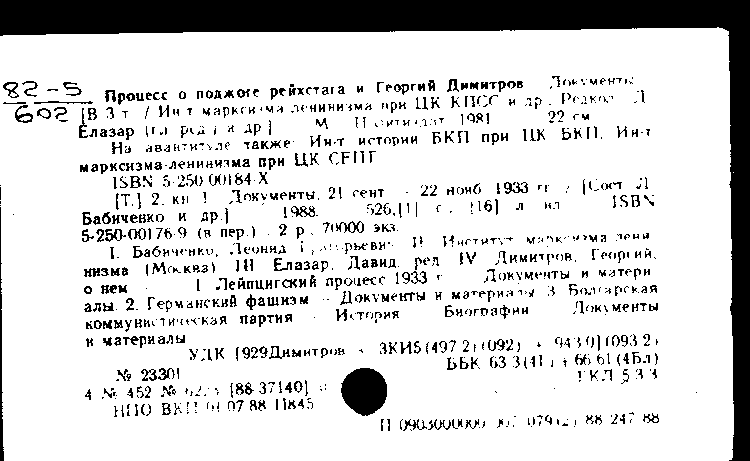 82-5
602
Процесс о поджоге рейхстага и Георгий Димитров Документы
[В 3 т. / Ин-т марксизма-ленинизма при ЦК КПСС и др. Редкол. Д
Елазар (гл. ред.) и др.] М Политиздат 1981 22 см
На авантитуле также: Ин-т истории БКП при ЦК БКП, Ин-т
марксизма-ленинизма при ЦК СЕПГ
ISBN 5-250-00184-X
[Т.] 2, кн. 1 Документы, 21 сент. - 22 нояб. 1933 гг. / [Сост. Л
Бабиченко и др.] 1988. 526,[1] с., [16] л ил ISBN
5-250-00176-9 (в пер.) 2 р., 70000 экз.
I. Бабиченко, Леонид Григорьевич II Институт марксизма-лени
низма (Москва) III Елазар, Давид, ред IV Димитров, Георгий,
о нем 1 Лейпцигский процесс 1933 г Документы и матери
алы. 2. Германский фашизм - Документы и материалы 3 Болгарская
коммунистическая партия - История Биографии Документы
и материалы
УДК [929Димитров + 3КИ5(497.2)(092) + 943.0](093.2)
ББК 63.3(4Г) + 66.61(4Бл)
№ 23301 ТКП 5.3.3
4 № 452 № [88-37140]
НПО ВКП 01.07.88 Н845
П 0903000000 079(2) 88 247-88